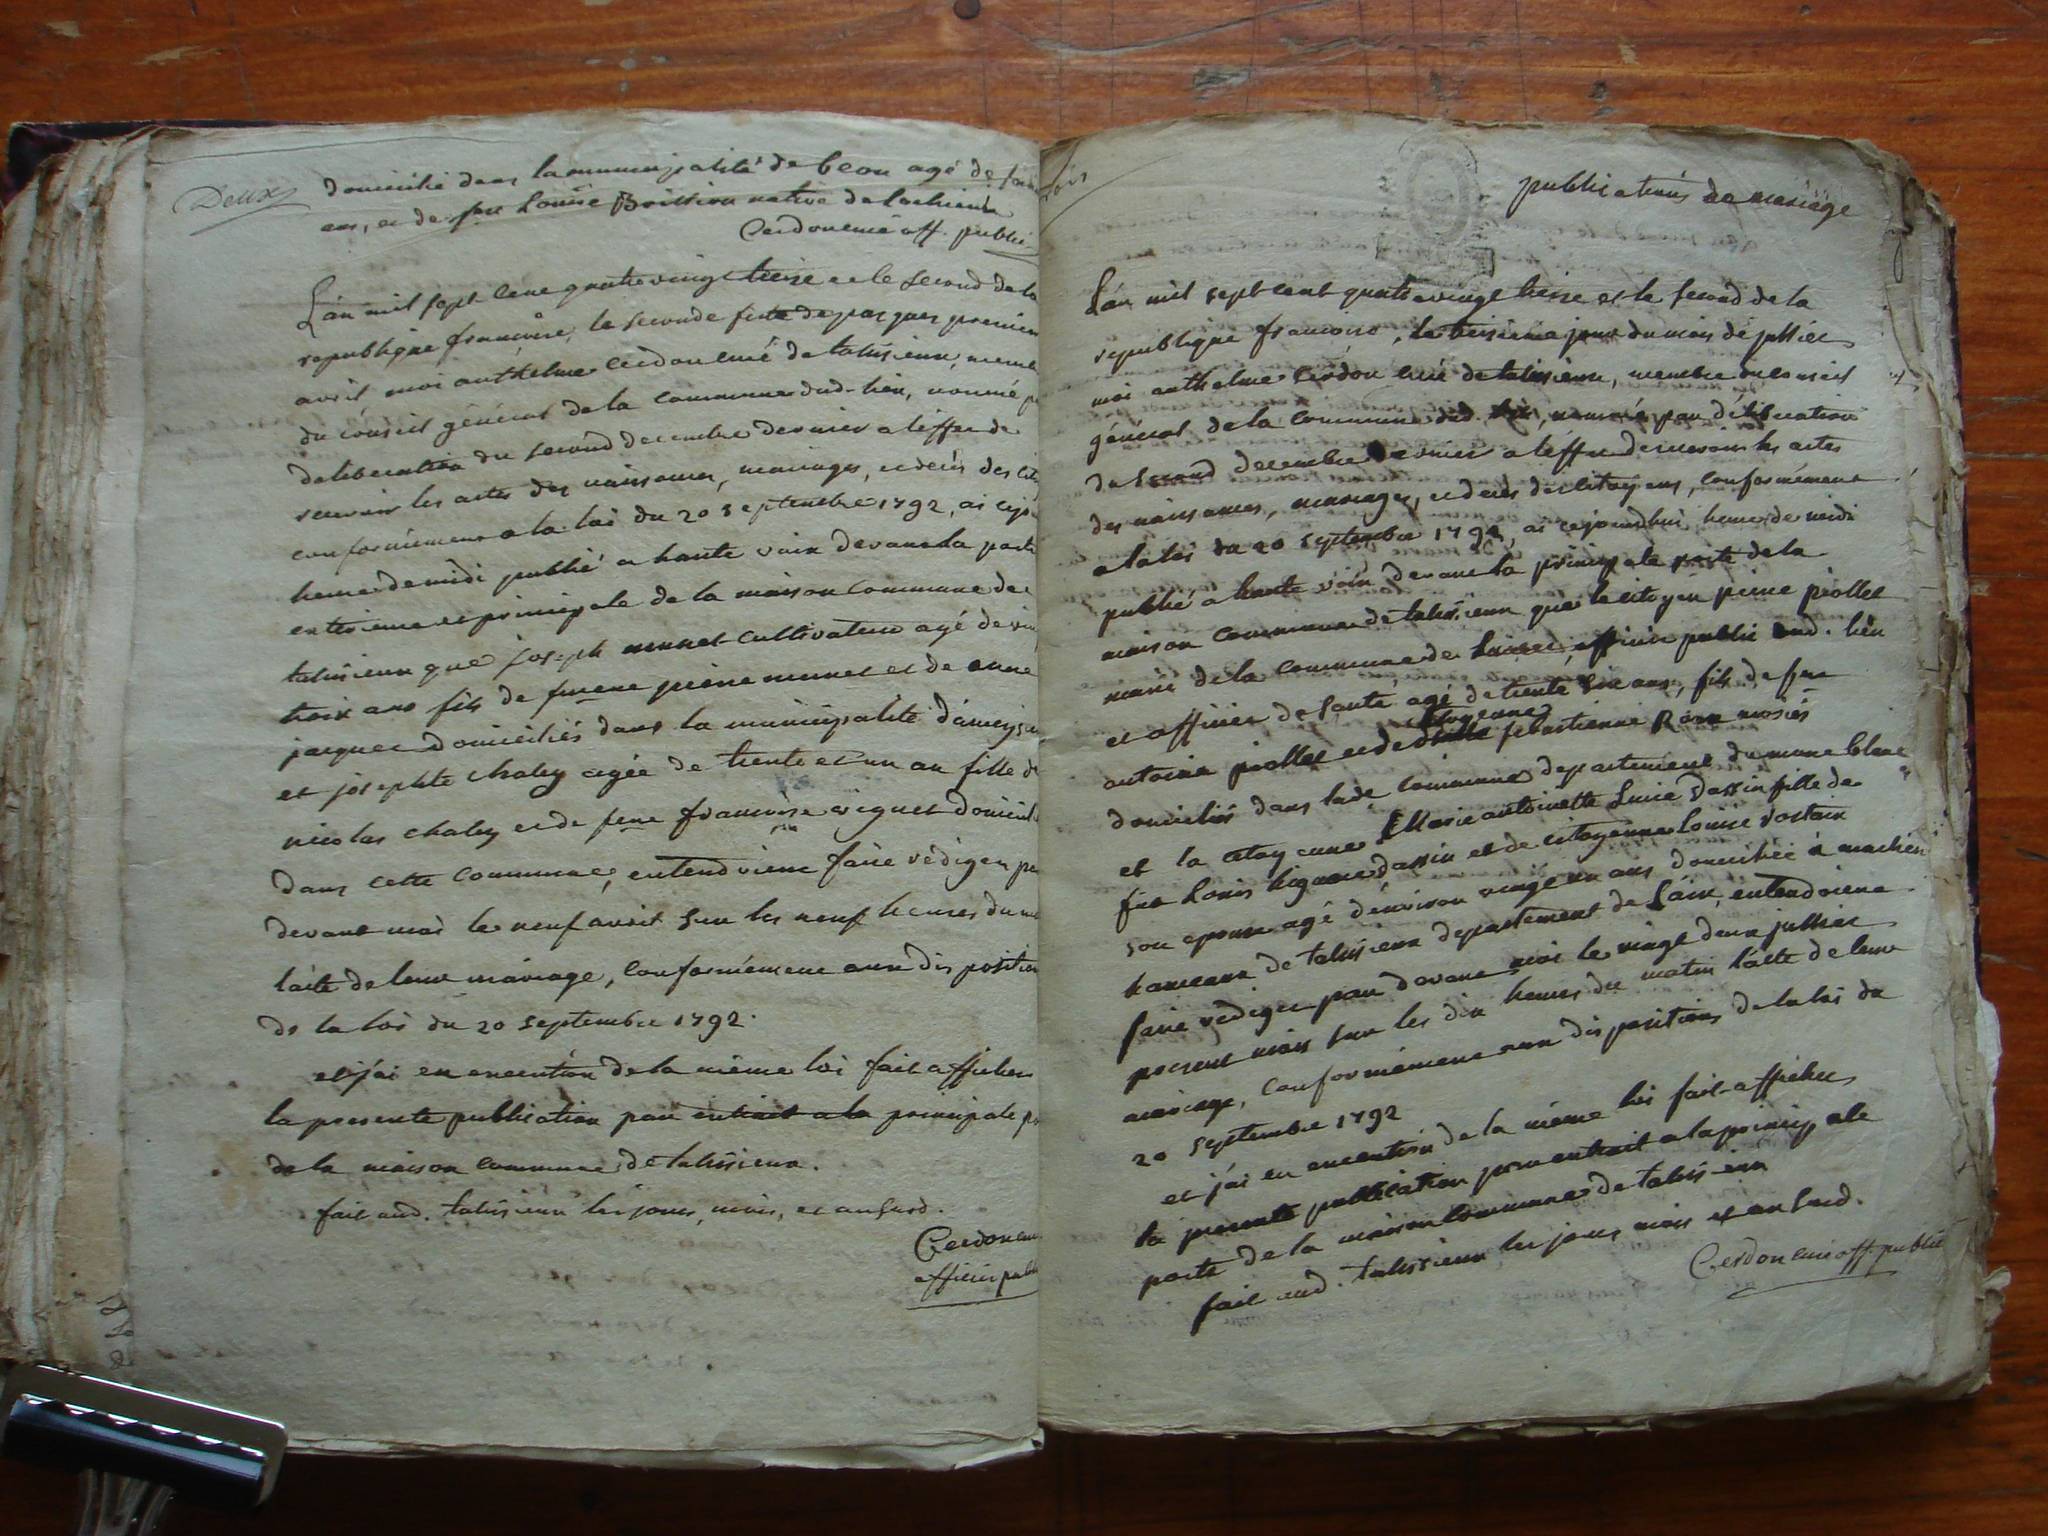 Deux
domicilié dans la municipalité de beon agé de
ans, et de feu Louise Brission native de Lachieux
Cerdon curé off. public
L'an mil sept cent quatre vingt treize et le second de la
republique françoise, le seconde fete de pasques premier
avril moi anthelme cerdon curé de talissieux, membre
du conseil général de la commune dud. lieu, nommé p
deliberation du second decembre dernier a l'effet de
recevoir les actes des naissances, mariages, et decès des cit
conformément a la loi du 20 septembre 1792, ai cejo
heure de midi publié a haute voix devant la porte
exterieure et principale de la maison commune de
talissieux que joseph monnet cultivateur agé de vin
trois ans fils de feu pierre monnet et de anne
jacquer domiciliés dans la municipalité d'ameyzi
et josephte chaley agée de trente et un an fille d
nicolas chaley et de feue françoise criquet domicil
dans cette commune, entendvient faire rédiger pa
devant moi le neuf avril sur les neuf heures du m
l'acte de leur mariage, conformément aux disposition
de la loi du 20 septembre 1792.
et j'ai en execution de la même loi fait afficher
la presente publication par extrait a la principale p
de la maison commune de talissieux.
fait aud. talissieux les jour, mois, et an susd.
Cerdon cur
officier publ
ois
publications de mariage
L'an mil sept cent quatre vingt treize et le second de la
republique françoise, le treisieme jour du mois de juillet
moi anthelme cerdon curé de talissieux, membre du conseil
général de la commune dud. lieu, nommé par délibération
du second decembre dernier a l'effet de recevoir les actes
des naissances, mariages, et decès des citoyens, conformément
a la loi du 20 septembre 1792, ai cejourdhui heure de midi
publié a haute voix devant la principale porte de la
maison commune de talissieux que le citoyen pierre piollet
maire de la commune de officier public aud. lieu
et officier de santé agé de trente six ans, fils de feu
citoyenne
antoine piollet et de sebastienne Rose
domiciliés dans lade commune departement du mont blanc
et la citoyenne Marie antoinette Lucie Dassin fille de
feu Louis Dassin et de citoyenne Louise
son epouse agé d'environ vingt un ans domiciliée à machien
hameau de talissieux departement de L'ain, entendvient
faire rediger par devant moi le vingt deux juillet
present mois sur les dix heures du matin l'acte de leur
mariage, conformément aux dispositions de la loi du
20 septembre 1792
et j'ai en execution de la même loi fait afficher
la presente publication par extrait a la principale
porte de la maison commune de talissieux
fait aud. talissieux les jour mois et an susd.
Cerdon curé off. public